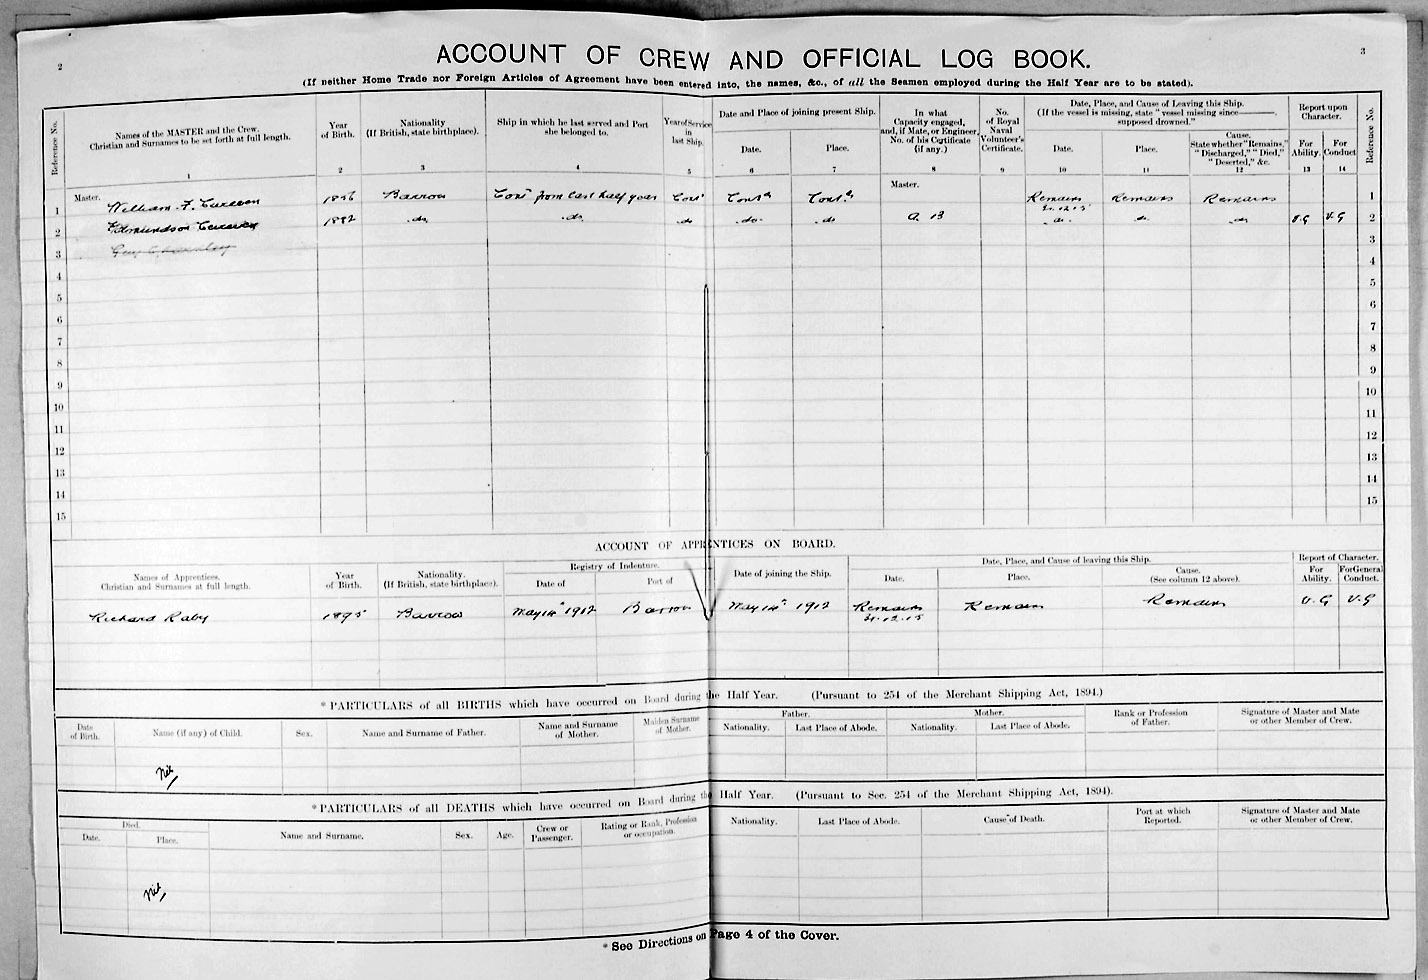 2
3
ACCOUNT OF CREW AND OFFICIAL LOG BOOK.
(If neither Home Trade nor Foreign Articles of Agreement have been entered into, the names, &c., of all the Seamen employed during the Half Year are to be stated).
Reference No.
Names of the MASTER and the Crew.
Christian and Surnames to be set forth at full length.
1
Year
of Birth.
2
Nationality
(If British, state birthplace).
3
Ship in which he last served and Port
she belonged to.
4
Year of Service
in
last Ship.
5
Date and Place of joining present Ship.
Date.
6
Place.
7
In what
Capacity engaged,
and, if Mate, or Engineer,
No. of his Certificate
(if any.)
8
No.
of Royal
Naval
Volunteer's
Certificate.
9
Date, Place, and Cause of Leaving this Ship.
(If the vessel is missing, state "vessel missing since———,
supposed drowned."
Date.
10
Place.
11
Cause.
State whether "Remains,"
"Discharged," "Died,"
"Deserted," &c.
12
Report upon
Character.
For
Ability.
13
For
Conduct
14
Reference No.
1 Master. William F. 1856 Barrow Cont from last half year Cont Cont Cont Master. Remains 31.12.15 Remains Remains 1
2 Edmundson 1882 do do do do do A B do do do V.G V.G 2
3 Guy 3
4 4
5 5
6 6
7 7
8 8
9 9
10 10
11 11
12 12
13 13
14 14
15 15
ACCOUNT OF APPRENTICES ON BOARD.
Names of Apprentices.
Christian and Surnames at full length.
Year
of Birth.
Nationality.
(If British, state birthplace).
Registry of Indenture.
Date of
Port of
Date of joining the Ship.
Date, Place, and Cause of leaving this Ship.
Date.
Place.
Cause.
(See column 12 above).
Report of Character.
For
Ability.
For General
Conduct.
Richard Raby 1895 Barrow May 14th 1912 Barrow May 14th 1912 Remains Remains Remains V.G V.G
31.12.15
*PARTICULARS of all BIRTHS which have occurred on Board during the Half Year. (Pursuant to 254 of the Merchant Shipping Act, 1894.)
Date
of Birth.
Name (if any) of Child.
Sex.
Name and Surname of Father.
Name and Surname
of Mother.
Maiden Surname
of Mother.
Father.
Nationality.
Last Place of Abode.
Mother.
Nationality.
Last Place of Abode.
Rank or Profession
of Father.
Signature of Master and Mate
or other Member of Crew.
Nil
*PARTICULARS of all DEATHS which have occurred on Board during the Half Year. (Pursuant to Sec. 254 of the Merchant Shipping Act, 1894).
Died.
Date.
Place.
Name and Surname.
Sex.
Age.
Crew or
Passenger.
Rating or Rank, Profession
or occupation.
Nationality.
Last Place of Abode.
Cause of Death.
Port at which
Reported.
Signature of Master and Mate
or other Member of Crew.
Nil
*See Directions on Page 4 of the Cover.